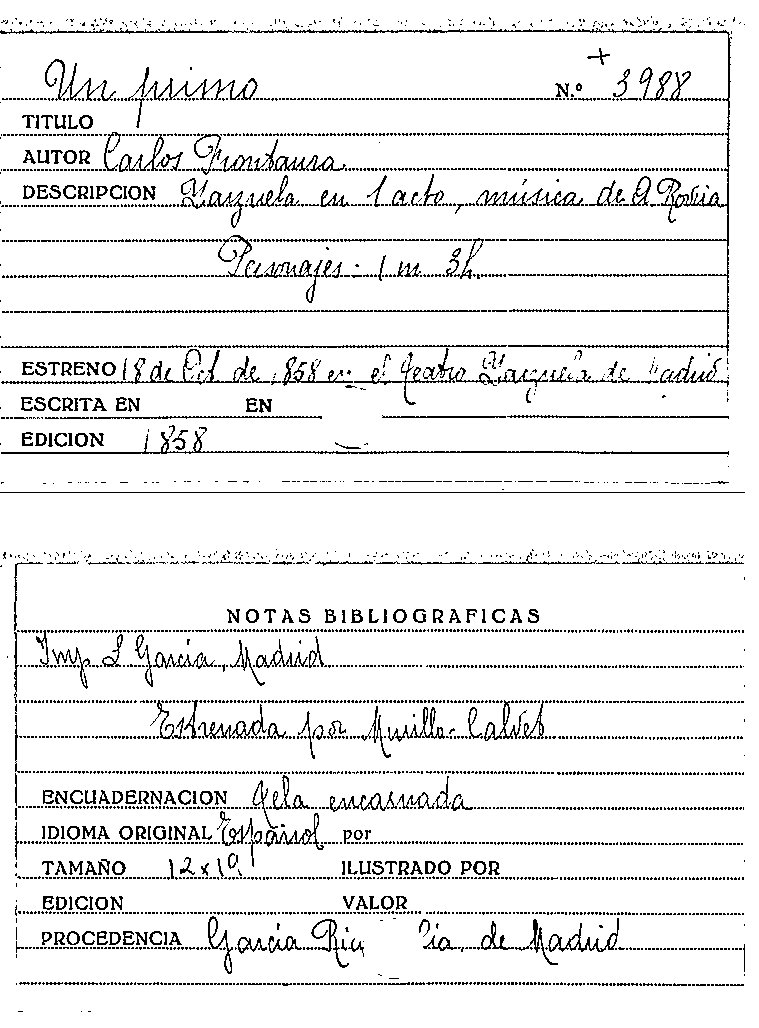 +
Un primo N.º 3988
TITULO
AUTOR Carlos Frontaura
DESCRIPCION Zarzuela en 1 acto, música de A Rovira
Personajes - 1 m 3h.
ESTRENO 18 de Oct de 1858 en el Teatro Zarzuela de Madrid
ESCRITA EN EN
EDICION 1858
NOTAS BIBLIOGRAFICAS
Imp L Garcia, Madrid
Estrenada por Murillo - Calvet
ENCUADERNACION Tela encarnada
IDIOMA ORIGINAL Español por
TAMAÑO 12x19 ILUSTRADO POR
EDICION VALOR
PROCEDENCIA García Rico Cia, de Madrid